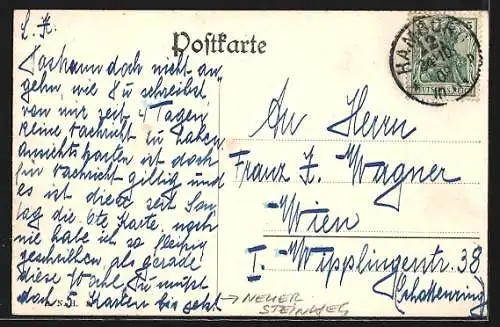 L. F.
Postkarte
HAMBURG
12
10
DEUTSCHES REICH
Das kann doch nicht an-
gehn, wie Du schreibst
von mir seit 4 Tagen
keine Nachricht zu haben
Ansichtskarten ist doch
Nachricht giltig und
es ist diese seit Son-
tag die 6te Karte, noch
nie habe ich so fleißig
geschrieben als gerade
diese Woche. Du mußt
doch 5 Karten bis jetzt
An Herrn
Franz Wagner
Wien
I. Wipplingerstr. 38
(Schottenring)
→ NEUER
STEINWEG